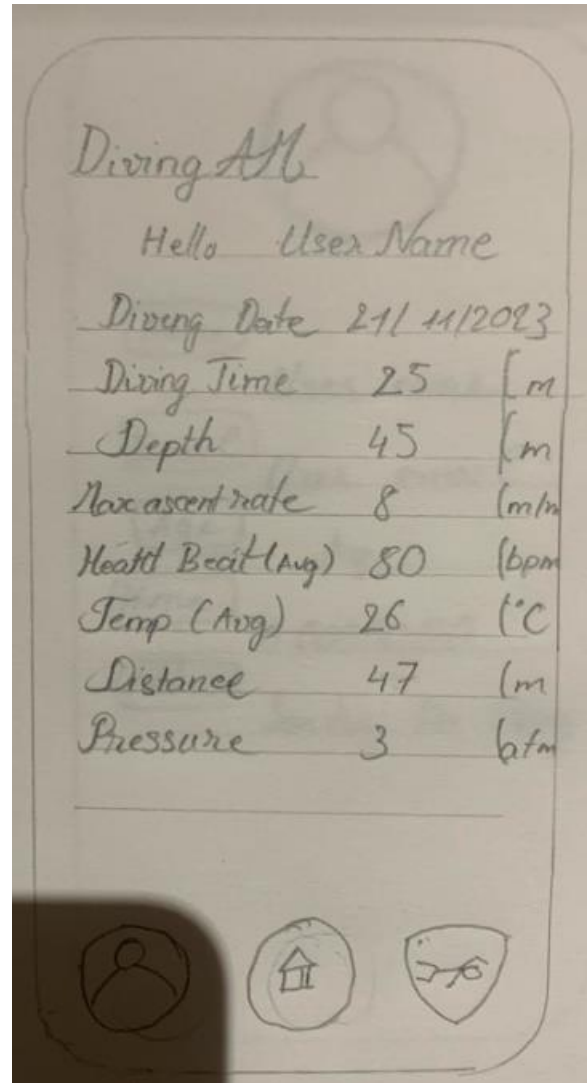 Diving AM
Hello User Name
Diving Date 21/11/2023
Diving Time 25 [m
Depth 45 [m
Max ascent rate 8 (m/m
Heatd Beat (Avg) 80 (bpm
Temp (Avg) 26 (°C
Distance 47 (m
Pressure 3 (atm